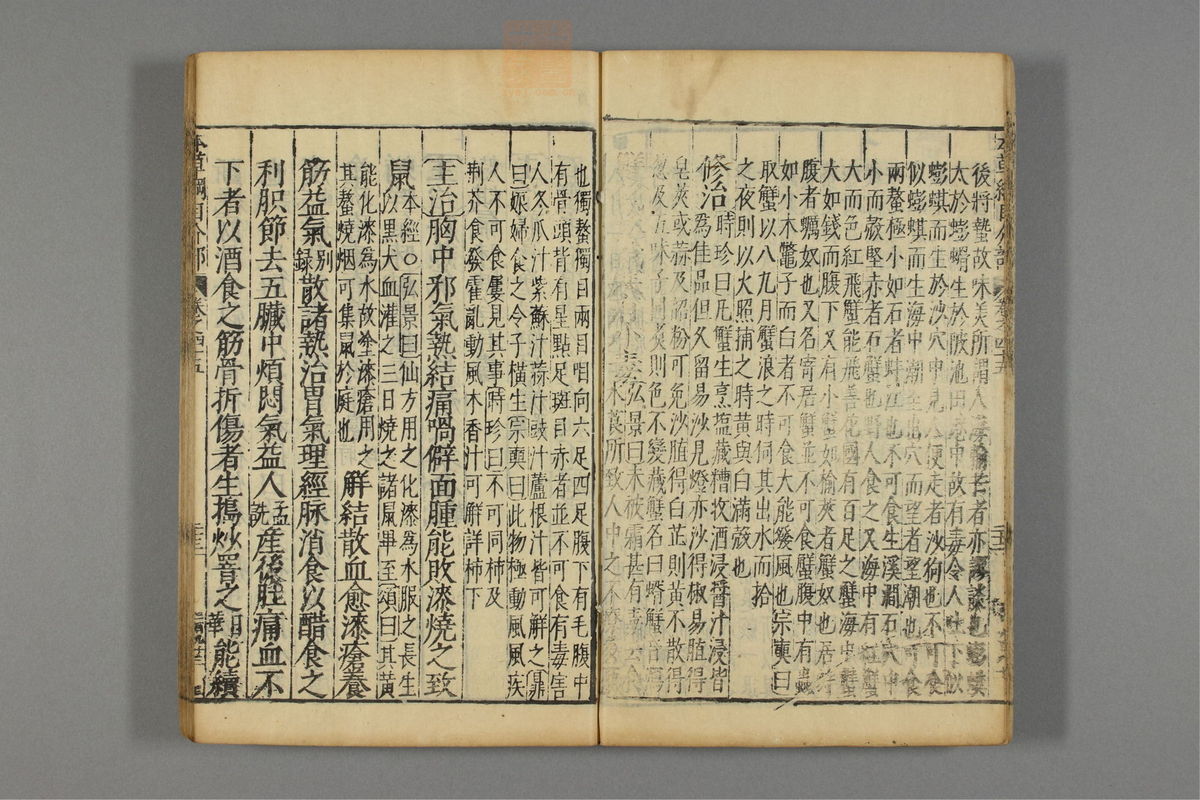 後將蟄故味美所謂入
大於蟛螖生於陂池田港中故有毒令人吐下似
蟛蜞而生於沙穴中見人便走者沙狗也不可食
似蟛蜞而生海中潮至出穴而望者望潮也可食
兩螯極小如石者蚌江也不可食生溪澗石穴中
小而殼堅赤者石蟹也野人食之又海中有紅蟹
大而色紅飛蟹能飛善苑國有百足之蟹海中蟹
大如錢而腹下又有小蟹如榆莢者蟹奴也居蚌
腹者蠣奴也又名寄居蟹並不可食蟹腹中有蟲
如小木鼈子而白者不可食大能發風也宗奭曰
取蟹以八九月蟹浪之時伺其出水而拾
之夜則以火照捕之時黃與白滿殼也
修治時珍曰凡蟹生烹鹽藏糟收酒浸醬汁浸皆
為佳品但久留易沙見燈亦沙得椒易脂得
皂莢或蒜及韶粉可免沙脂得白芷則黃不散得
葱及五味子同煮則色不變藏蟹名曰蝑蟹
小毒弘景曰未被霜甚有毒
水莨所致人中之不
也獨螯獨目兩目相向六足四足腹下有毛腹中
有骨頭背有星點足斑目赤者並不可食有毒害
人冬瓜汁紫蘇汁蒜汁豉汁蘆根汁皆可解之鼎
曰娠婦食之令子橫生宗奭曰此物極動風風疾
人不可食屢見其事時珍曰不可同柿及
荊芥食發霍亂動風木香汁可解詳柿下
主治胸中邪氣熱結痛喎僻面腫能敗漆燒之致
鼠本經○弘景曰仙方用之化漆為水服之長生
以黑犬血灌之三日燒之諸鼠畢至頌曰其黃
能化漆為水故塗漆瘡用之
其螯燒烟可集鼠於庭也 解結散血愈漆瘡養
筋益氣別錄散諸熱治胃氣理經脉消食以醋食之
利肢節去五臟中煩悶氣益人孟詵產後肚痛血不
下者以酒食之筋骨折傷者生搗炒罯之日華能續
本草綱目介部 卷之四十五